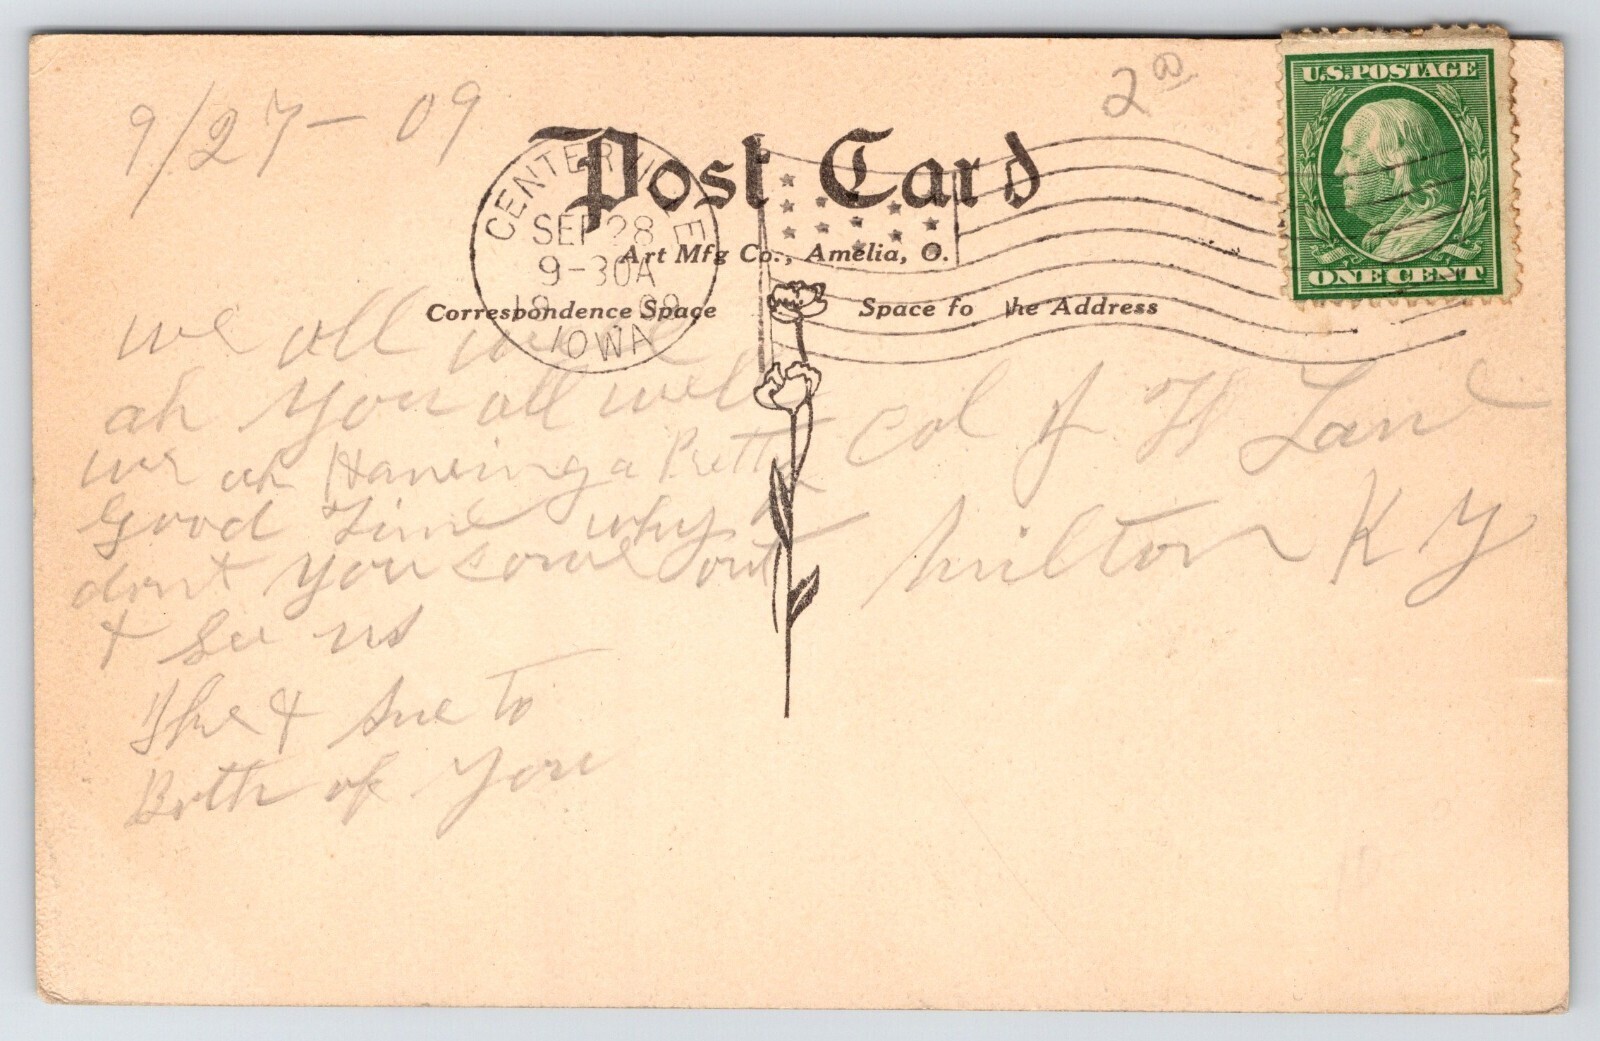 9/27-09
2 00
U.S. POSTAGE
ONE CENT
Post Card
CENTERVILLE
SEP 28
9-30A
1909
IOWA
Art Mfg Co., Amelia, O.
Correspondence Space
Space fo he Address
we all well
ah you all well
we ah Haveing a Pretty
Good Time why
dont you come out
& See us
The & Sue to
Both of you
Col J W Lane
Milton KY